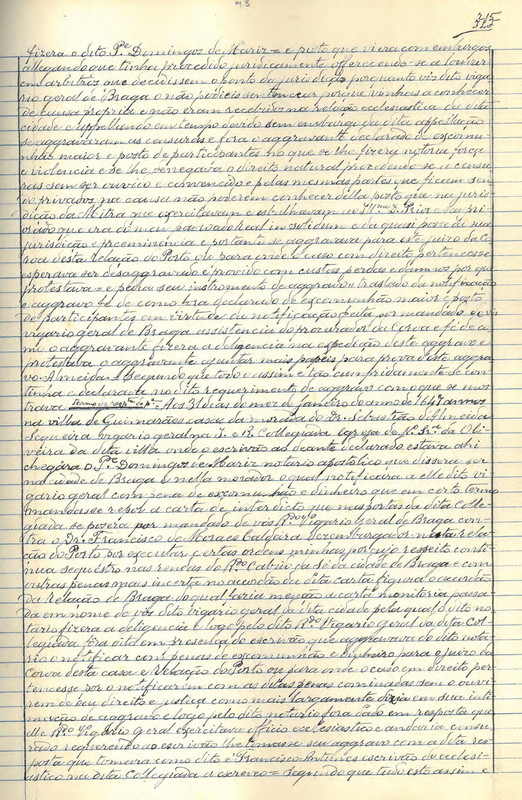 315
fizera o dito P.e Domingos de Mariz = e posto que viera com embargos
allegando que tinha procedido juridicamente offerecendo-se a louvar
em arbitros que decidissem o ponto da jurisdição porquanto vós dito viga-
rio geral de Braga o não podieis sentencear porque vinhas a conhecer
de causa propria e não eram recebidos na relação ecclesiastica da dita
cidade e appellando em tempo devido sem embargo da dita appellação
se aggravaram as censuras e fora o aggravante declarado de excomu-
nhão maior e posto de participantes no que se lhe fizera notoria força
e violencia e se lhe denegava o direito natural procedendo-se a censu-
ras sem ser ouvido e convencido e pelas mesmas partes que ficam sen-
do privados na causa não poderem conhecer della posto que na juris-
dição da Mitra que exercitavam e esbulhavam o Prior do seu pri-
orado que era do meu padroado Real in solidum e da quasi posse da sua
jurisdição e preeminencia e portanto se aggravava para este juizo da Co-
roa desta Relação do Porto ou para onde o caso com direito pertencesse
esperava ser desaggravado e provido com custas perdas e damnos por que
protestava = e pedia seu instrumento de aggravo o traslado da notificação
e aggravo de como fora declarado de excomunhão maior e posto
de participantes em virtude da notificação feita por mandado do vos
vigario geral de Braga assistencia do procurador da Coroa e fé de co-
mo o aggravante fizera a deligencia na expedição deste aggravo e
protestava o aggravante ajuntar mais papeis para prova deste aggra-
vo. Almeida = Segundo que todo assim e tão cumpridamente se con-
tinha e declarava no dito requerimento de aggravo com o que se mos-
trava termo de Aos 31 dias do mez de Janeiro do anno de 1647 annos
na villa de Guimarães casas da morada do Dr. Sebastião d'Almeida
Sequeira vigario geral na I. e R. Collegiada igreja de N. Sr.a da Oli-
veira da dita villa onde eu escrivão ao deante declarado estava ahi
chegára o P.e Domingos de Mariz notario apostolico que dissera ser
na cidade de Braga e nella morador o qual notificára a elle dito vi-
gario geral com pena de excomunhão e dinheiro que em certo termo
mandasse repôr a carta de interdicto que nas portas da dita Colle-
giada se pozera por mandado de vós R.do Vigario Geral de Braga con-
tra o Dr. Francisco de Moraes Caldara Dezembargador nesta rela-
ção do Porto por executar certas ordens minhas por cujo respeito conti-
nua sequestro nas rendas do R.do Cabido da Sé da cidade de Braga e com
outras penas mais incerta no acordão da dita carta figura o acordão
da relação de Braga do qual fazia menção a carta monitoria passa-
da em nome do vós dito vigario geral da dita cidade pela qual o dito no-
tario fizera a deligencia e logo pelo dito R.do Vigario geral da dita Col-
legiada fora dito em presença do escrivão que aggravava do dito nota-
rio o notificar com penas de excomunhão e dinheiro para o juizo da
Coroa desta casa e Relação do Porto ou para onde o caso em direito per-
tencesse por o notificarem com as ditas penas cominadas sem o ouvi-
rem de seu direito e justiça como mais largamente dizia em sua inti-
mação de aggravo e logo pelo dito notario fora dado em resposta que
elle R.do Vigario geral exercitava officio ecclesiastico e andaria censu-
rado requerendo ao escrivão lhe tomasse seu aggravo com a dita res-
posta que tomara como dito é Francisco Antunes escrivão do eclesi-
astico na dita Collegiada o escrevi = Segundo que tudo esta assim e